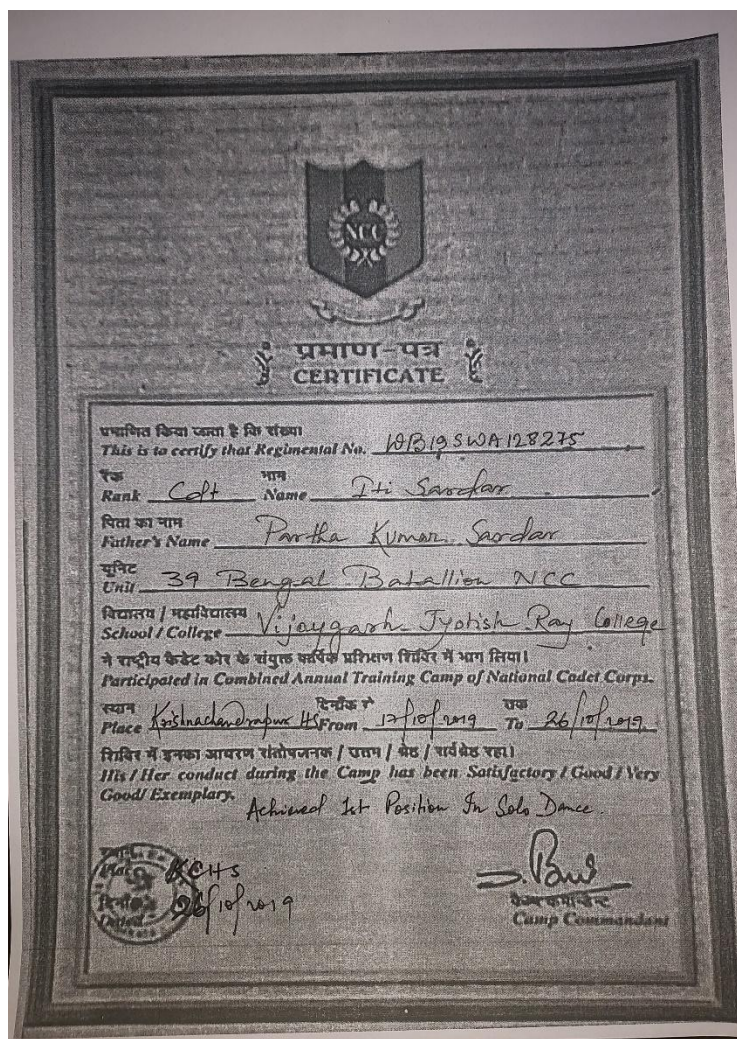 NCC
प्रमाण-पत्र
CERTIFICATE
प्रमाणित किया जाता है कि संख्या
This is to certify that Regimental No. WB19SWA128275
रैंक नाम
Rank Cdt Name Iti Sardar
पिता का नाम
Father's Name Partha Kumar Sardar
यूनिट
Unit 39 Bengal Batallion NCC
विद्यालय / महाविद्यालय
School / College Vijaygarh Jyotish Ray College
ने राष्ट्रीय कैडेट कोर के संयुक्त वार्षिक प्रशिक्षण शिविर में भाग लिया।
Participated in Combined Annual Training Camp of National Cadet Corps.
स्थान दिनाँक से तक
Place Krishnachandrapur HS From 17/10/2019 To 26/10/2019
शिविर में इनका आचरण संतोषजनक / उत्तम / श्रेष्ठ / सर्वश्रेष्ठ रहा।
His / Her conduct during the Camp has been Satisfactory / Good / Very
Good/ Exemplary.
Achieved 1st Position In Solo Dance.
KCHS
दिनाँक 26/10/2019
Dated
कैम्प कमान्डेन्ट
Camp Commandant